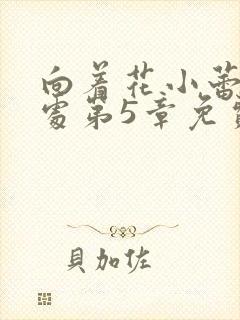 向着花小蕾
处第5章免费
贝加佐